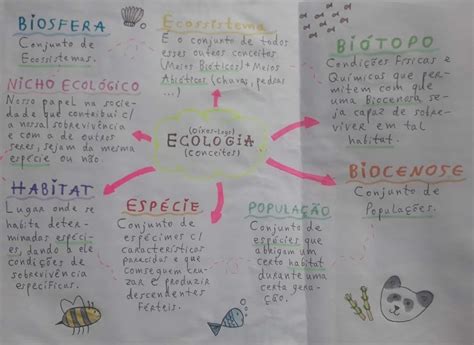 BIOSFERA
Conjunto de
Ecossistemas.
Ecossistema
É o conjunto de todos
esses outros conceitos
(Meios Bióticos)+Meios
Abióticos (chuvas, pedras
...)
BIÓTOPO
Condições Físicas e
Químicas que per-
mitem com que
uma Biocenosa se-
ja capaz de sobre-
viver em tal
habitat.
NICHO ECOLÓGICO
Nosso papel na socie-
dade que contribui c/
a nossa sobrevivência
e com a de outros
seres, sejam da mesma
espécie ou não.
ECOLOGIA
(conceitos)
BIOCENOSE
Conjunto de
Populações.
HABITAT
Lugar onde se
habita deter-
minadas espéci-
es, dando a ele
condições de
sobrevivência
específicas.
ESPÉCIE
Conjunto de
espécimes c/
características
parecidas e que
conseguem cru-
zar e produzir
descendentes
férteis.
POPULAÇÃO
Conjunto de
espécies que
abrigem um
certo habitat
durante uma
certa gera-
ção.